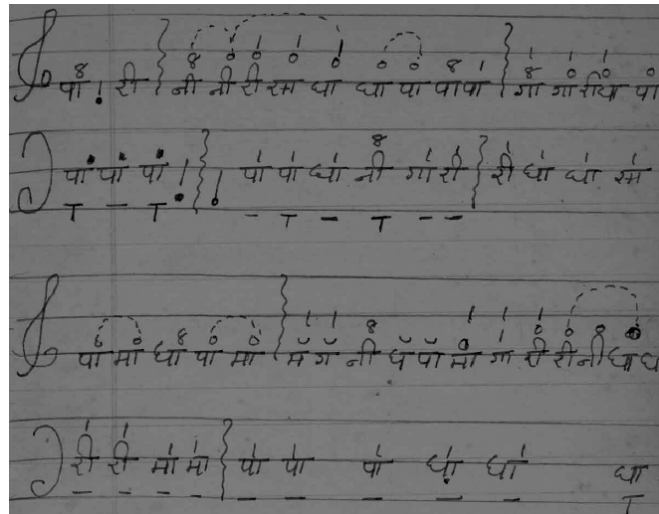 पा ! री नी नी री रम धा धा पा पा पा गा गा री पा
पा पा पा ! ! पा पा धा नी गा री री धा धा
पा मा धा पा मा म ग नी ध पा मा गा री री नी धा ध
री री मा मा पा पा पा धा धा धा